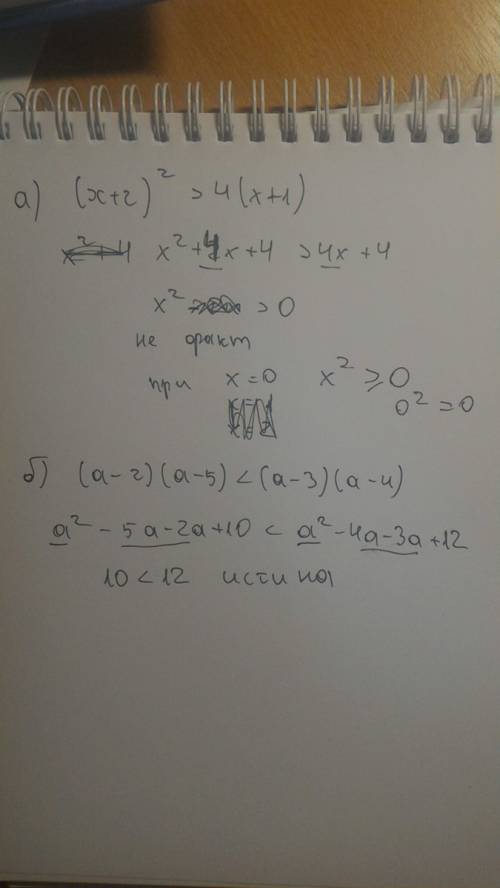 а) (x+2)² > 4(x+1)
x²+4x+4 > 4x+4
x² > 0
не факт
при x=0 x² ⩾ 0
0²=0
б) (a-2)(a-5) < (a-3)(a-4)
a²-5a-2a+10 < a²-4a-3a+12
10 < 12 истина